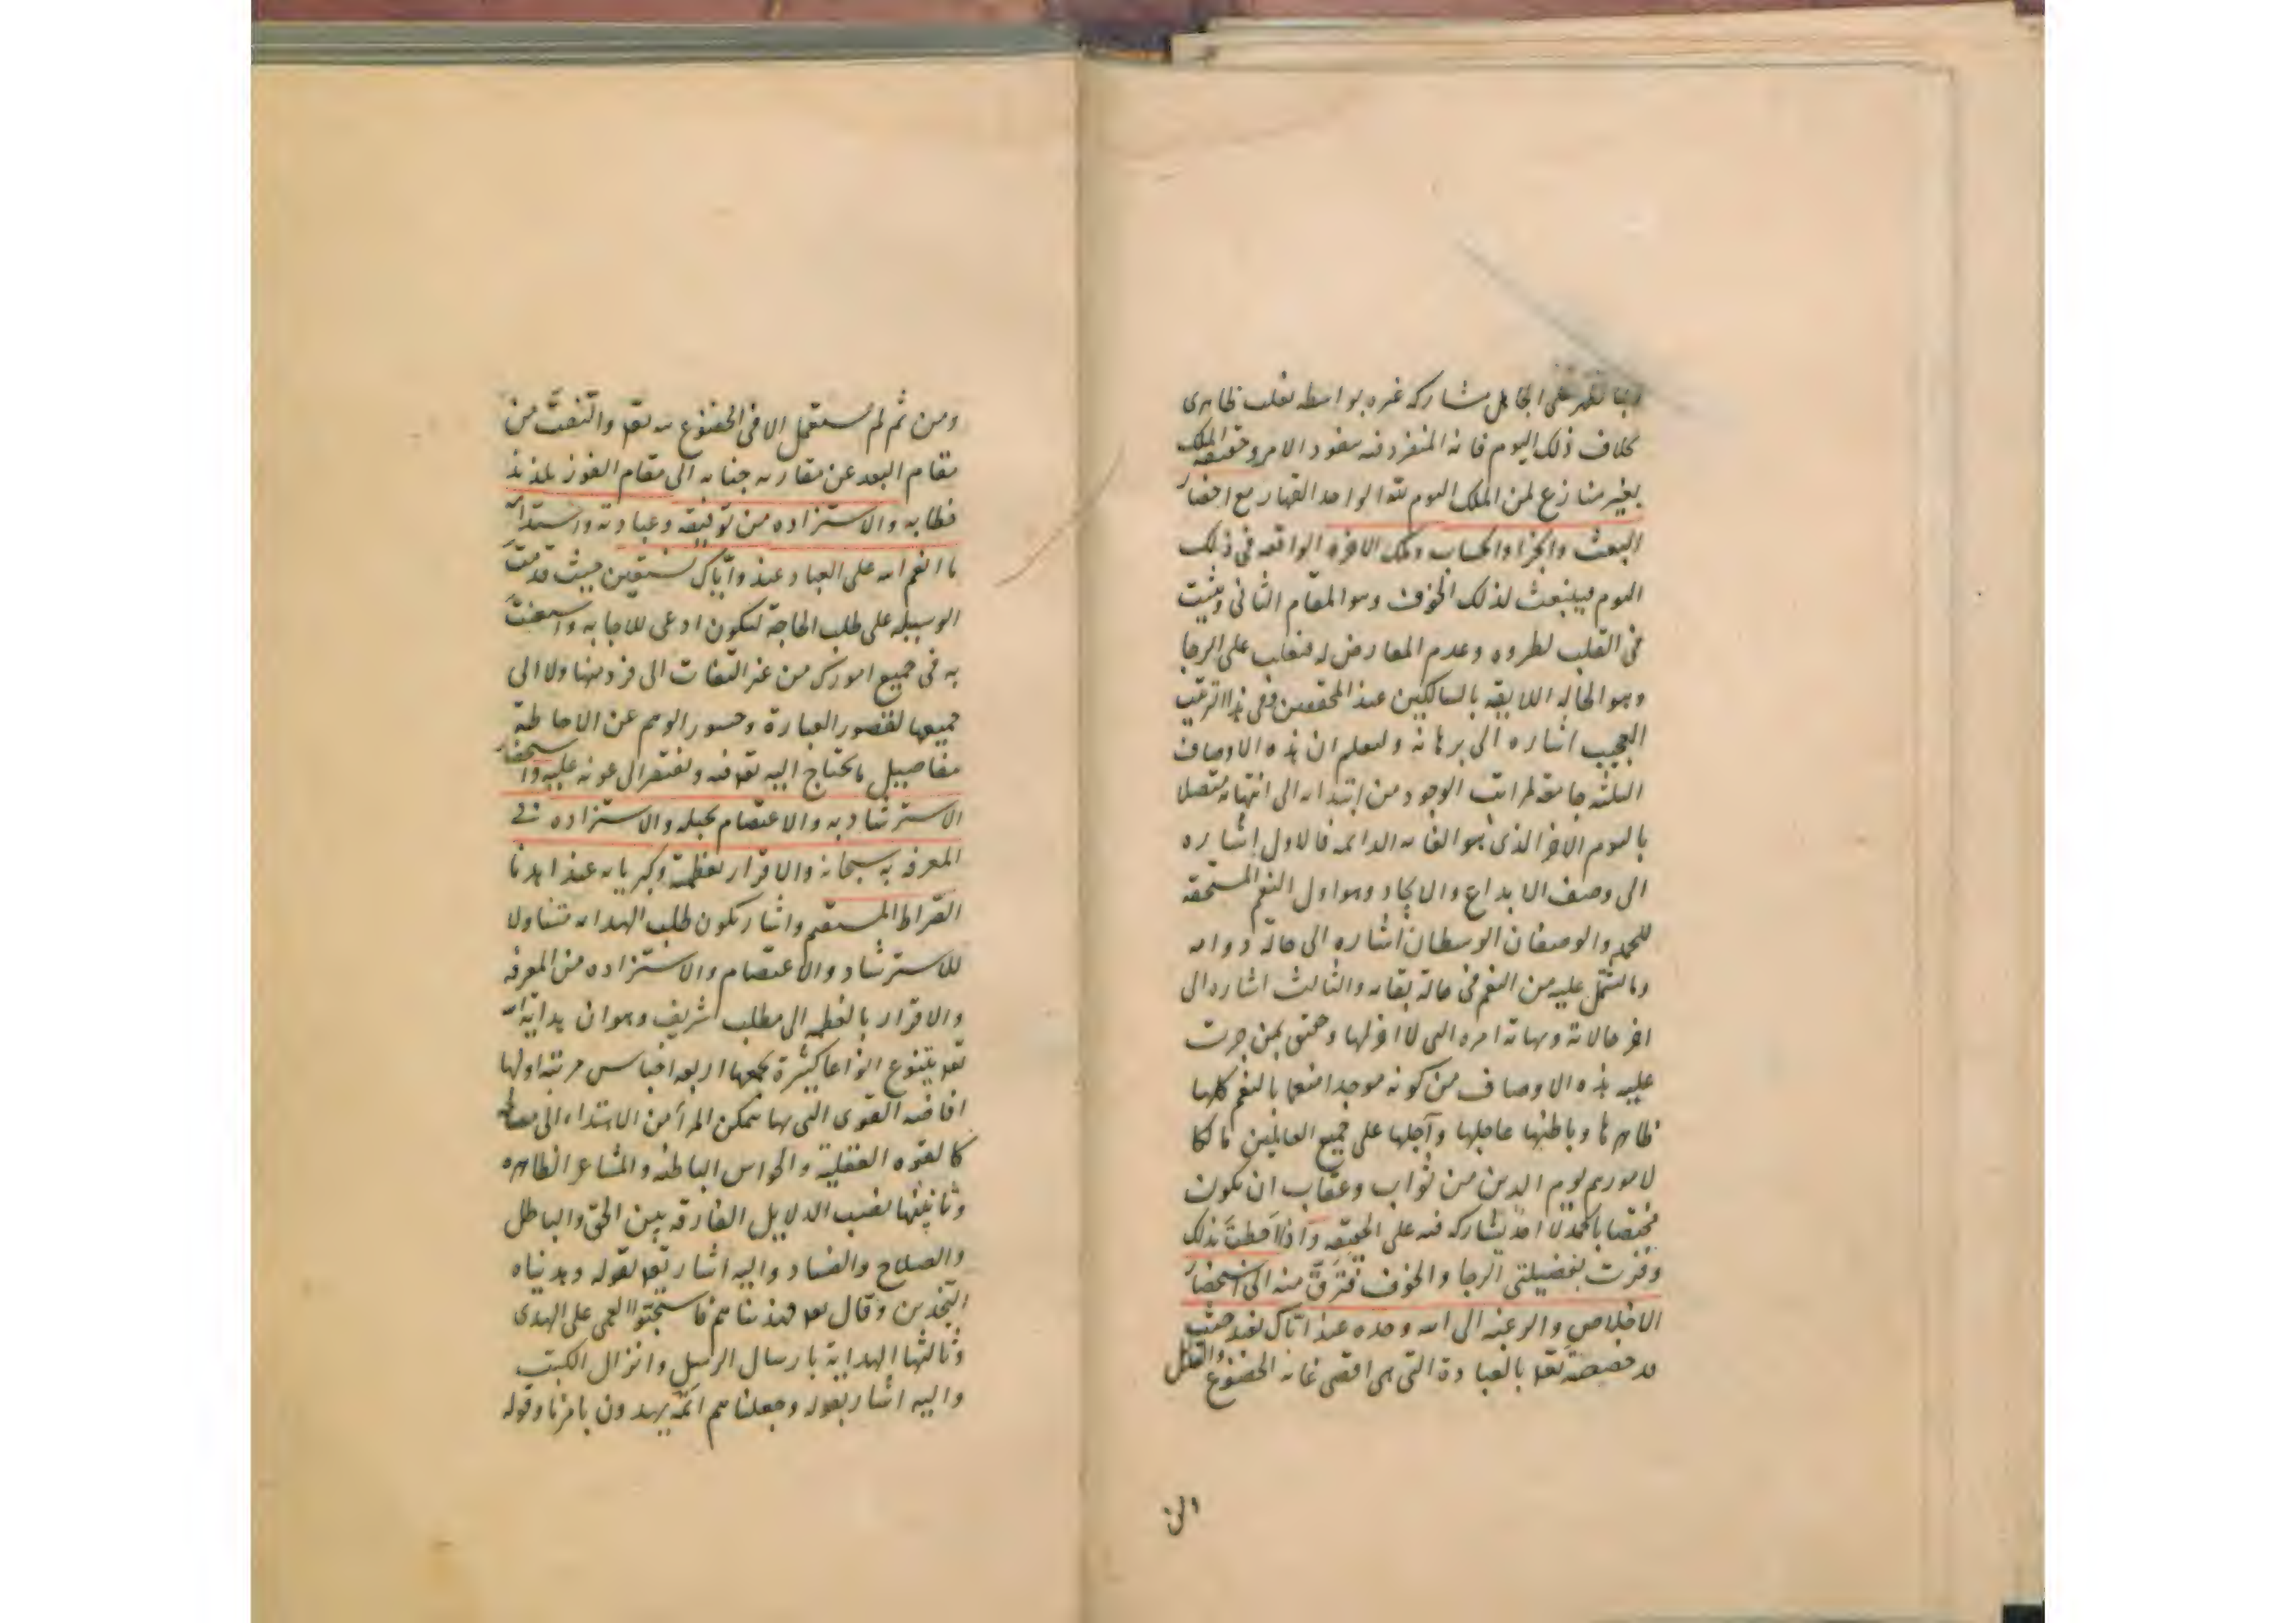 على الجاهل مشاركه غيره بواسطه تغلب ظاهرى
بخلاف ذلك اليوم فانه المنفرد فيه بنفوذ الامر وحقيقة الملك
بغير منازع لمن الملك اليوم لله الواحد القهار مع احضار
البعث والجزا والحساب وملك الاخره الواقعه فى ذلك
اليوم فينبعث لذلك الخوف وهو المقام الثانى ويثبت
فى القلب لطروه وعدم المعارض له فتغلب على الرجا
وهو الحاله اللايقه بالسالكين عند المحققين وفى هذا الترتيب
العجيب اشاره الى برهانه وليعلم ان هذه الاوصاف
الثلثه جامعة لمراتب الوجود من ابتدايه الى انتهايه متصلا
باليوم الاخر الذى هو الغايه الدايمه فالاول اشاره
الى وصف الابداع والايجاد وهو اول النعم المستحقه
للحمد والوصفان الوسطان اشاره الى حالة دوامه
وما يشتمل عليه من النعم فى حالة بقايه والثالث اشاره الى
اخر حالاته ونهاية امره التى لا اخر لها وحقيق بمن جرت
عليه هذه الاوصاف من كونه موجدا منعما بالنعم كلها
ظاهرها وباطنها عاجلها وآجلها على جميع العالمين مالكا
لامورهم يوم الدين من ثواب وعقاب ان يكون
مختصا بالحمد لا احد يشاركه فيه على الحقيقه واذا احطت بذلك
وفزت بفضيلتى الرجا والخوف فترق منه الى استحضار
الاخلاص والرغبه الى الله وحده عند اياك نعبد حيث
قد خصصته تعه بالعبادة التى هى اقصى غايه الخضوع والتذلل
ومن ثم لم يستعمل الا فى الخضوع لله تعه والتفت من
مقام البعد عن مقاربه جنابه الى مقام الفوز بلذيذ
خطابه والاستزاده من توفيقه وعبادته واستدامة
ما انعم الله على العباد عند واياك نستعين حيث قدمت
الوسيله على طلب الحاجة ليكون ادعى للاجابه واستعنت
به فى جميع امورك من غير التفات الى فرد منها ولا الى
جميعها لقصور العبارة وحسور الوهم عن الاحاطة
بتفاصيل ما يحتاج اليه تعه فيه وتفتقر الى عونه عليه واستحضار
الاسترشاد به والاعتصام بحبله والاستزاده فى
المعرفه به سبحانه والاقرار بعظمته وكبريايه عند اهدنا
الصراط المستقيم واشار بكون طلب الهدايه متناولا
للاسترشاد والاعتصام والاستزاده من المعرفه
والاقرار بالعظمه الى مطلب شريف وهو ان هداية الله
تعه يتنوع انواعا كثيرة يجمعها اربعه اجناس مرتبه اولها
افاضه القوى التى بها يتمكن المرأ من الاهتداء الى مصالحه
كالقوه العقلية والحواس الباطنه والمشاعر الظاهره
وثانيتها نصب الدلايل الفارقه بين الحق والباطل
والصلاح والفساد واليه اشار تعه بقوله وهديناه
النجدين وقال تعه فهديناهم فاستحبوا العمى على الهدى
وثالثها الهداية بارسال الرسل وانزال الكتب
واليه اشار بقوله وجعلناهم ائمة يهدون بامرنا وقوله